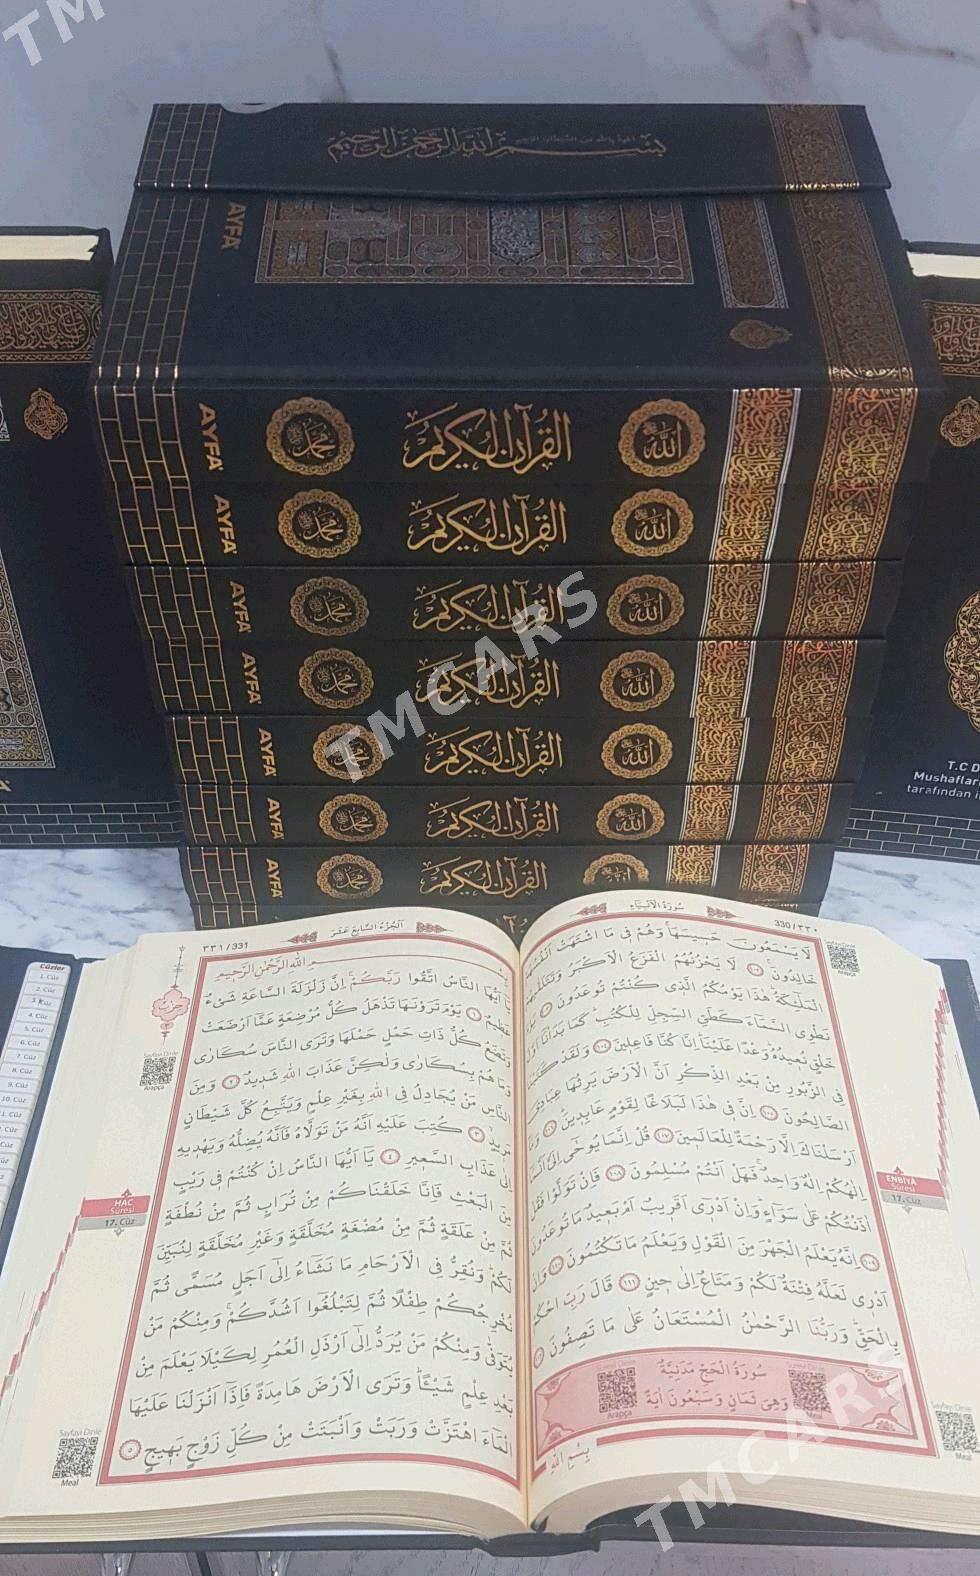 TM
بسم الله الرحمن الرحيم
AYFA
القرآن الكريم
الله
محمد
AYFA
القرآن الكريم
الله
محمد
AYFA
القرآن الكريم
الله
محمد
AYFA
القرآن الكريم
الله
محمد
AYFA
TMCARS
القرآن الكريم
الله
محمد
AYFA
القرآن الكريم
الله
محمد
AYFA
القرآن الكريم
الله
محمد
AYFA
T.C D
Mushaflar
tarafından i
سورة الأنبياء
330/٣٣٠
لَا يَسْمَعُونَ حَسِيسَهَا وَهُمْ فِى مَا اشْتَهَتْ اَنْفُسُهُمْ
خَالِدُونَ ١٠٢ لَا يَحْزُنُهُمُ الْفَزَعُ الْاَكْبَرُ وَتَتَلَقّٰيهُمُ
الْمَلٰٓئِكَةُ هٰذَا يَوْمُكُمُ الَّذِى كُنْتُمْ تُوعَدُونَ يَوْمَ
نَطْوِى السَّمَٓاءَ كَطَىِّ السِّجِلِّ لِلْكُتُبِ كَمَا بَدَأْنَٓا اَوَّلَ
خَلْقٍ نُعِيدُهُ وَعْدًا عَلَيْنَا اِنَّا كُنَّا فَاعِلِينَ ١٠٤ وَلَقَدْ كَتَبْنَا
فِى الزَّبُورِ مِنْ بَعْدِ الذِّكْرِ اَنَّ الْاَرْضَ يَرِثُهَا عِبَادِىَ
الصَّالِحُونَ ١٠٥ اِنَّ فِى هٰذَا لَبَلَاغًا لِقَوْمٍ عَابِدِينَ ١٠٦ وَمَٓا
اَرْسَلْنَاكَ اِلَّا رَحْمَةً لِلْعَالَمِينَ ١٠٧ قُلْ اِنَّمَا يُوحٰٓى اِلَىَّ اَنَّمَٓا
اِلٰهُكُمْ اِلٰهٌ وَاحِدٌ فَهَلْ اَنْتُمْ مُسْلِمُونَ ١٠٨ فَاِنْ تَوَلَّوْا فَقُلْ
اٰذَنْتُكُمْ عَلٰى سَوَٓاءٍ وَاِنْ اَدْرِٓى اَقَرِيبٌ اَمْ بَعِيدٌ مَا تُوعَدُونَ
١٠٩ اِنَّهُ يَعْلَمُ الْجَهْرَ مِنَ الْقَوْلِ وَيَعْلَمُ مَا تَكْتُمُونَ ١١٠ وَاِنْ
اَدْرِى لَعَلَّهُ فِتْنَةٌ لَكُمْ وَمَتَاعٌ اِلٰى حِينٍ ١١١ قَالَ رَبِّ احْكُمْ
بِالْحَقِّ وَرَبُّنَا الرَّحْمٰنُ الْمُسْتَعَانُ عَلٰى مَا تَصِفُونَ
سُورَةُ الْحَجِّ مَدَنِيَّةٌ
وَهِىَ ثَمَانٍ وَسَبْعُونَ اٰيَةً
Arapça
Meal
بِسْمِ اللّٰهِ
ENBİYA
Sûresi
17. Cüz
Sayfayı Dinle
Meal
الجزء السابع عشر
٣٣١/331
بِسْمِ اللّٰهِ الرَّحْمٰنِ الرَّحِيمِ
يَٓا اَيُّهَا النَّاسُ اتَّقُوا رَبَّكُمْ اِنَّ زَلْزَلَةَ السَّاعَةِ شَىْءٌ
عَظِيمٌ ١ يَوْمَ تَرَوْنَهَا تَذْهَلُ كُلُّ مُرْضِعَةٍ عَمَّٓا اَرْضَعَتْ
وَتَضَعُ كُلُّ ذَاتِ حَمْلٍ حَمْلَهَا وَتَرَى النَّاسَ سُكَارٰى
وَمَا هُمْ بِسُكَارٰى وَلٰكِنَّ عَذَابَ اللّٰهِ شَدِيدٌ ٢ وَمِنَ
النَّاسِ مَنْ يُجَادِلُ فِى اللّٰهِ بِغَيْرِ عِلْمٍ وَيَتَّبِعُ كُلَّ شَيْطَانٍ
مَرِيدٍ ٣ كُتِبَ عَلَيْهِ اَنَّهُ مَنْ تَوَلَّاهُ فَاَنَّهُ يُضِلُّهُ وَيَهْدِيهِ
اِلٰى عَذَابِ السَّعِيرِ ٤ يَٓا اَيُّهَا النَّاسُ اِنْ كُنْتُمْ فِى رَيْبٍ
مِنَ الْبَعْثِ فَاِنَّا خَلَقْنَاكُمْ مِنْ تُرَابٍ ثُمَّ مِنْ نُطْفَةٍ
ثُمَّ مِنْ عَلَقَةٍ ثُمَّ مِنْ مُضْغَةٍ مُخَلَّقَةٍ وَغَيْرِ مُخَلَّقَةٍ لِنُبَيِّنَ
لَكُمْ وَنُقِرُّ فِى الْاَرْحَامِ مَا نَشَٓاءُ اِلٰٓى اَجَلٍ مُسَمًّى ثُمَّ
نُخْرِجُكُمْ طِفْلًا ثُمَّ لِتَبْلُغُٓوا اَشُدَّكُمْ وَمِنْكُمْ مَنْ
يُتَوَفّٰى وَمِنْكُمْ مَنْ يُرَدُّ اِلٰٓى اَرْذَلِ الْعُمُرِ لِكَيْلَا يَعْلَمَ مِنْ
بَعْدِ عِلْمٍ شَيْـًٔا وَتَرَى الْاَرْضَ هَامِدَةً فَاِذَٓا اَنْزَلْنَا عَلَيْهَا
الْمَٓاءَ اهْتَزَّتْ وَرَبَتْ وَاَنْبَتَتْ مِنْ كُلِّ زَوْجٍ بَهِيجٍ ٥
حزب
Sayfayı Dinle
Arapça
HAC
Sûresi
17. Cüz
Sayfayı Dinle
Meal
Cüzler
1. Cüz
2. Cüz
3. Cüz
4. Cüz
5. Cüz
6. Cüz
7. Cüz
8. Cüz
9. Cüz
10. Cüz
TMCARS